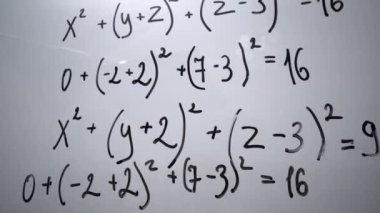 x² + (y+2)² + (z-3)² = 16
0 + (-2+2)² + (7-3)² = 16
x² + (y+2)² + (z-3)² = 9
0 + (-2+2)² + (7-3)² = 16